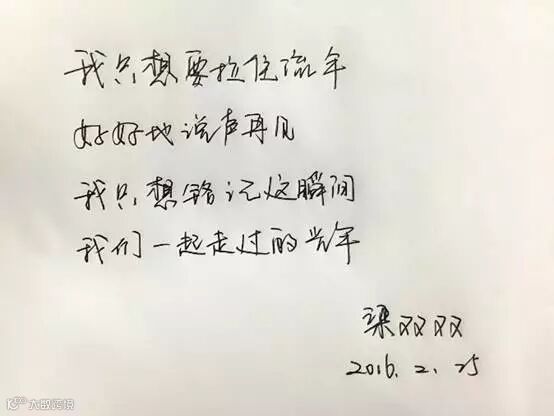 我只想要拉住流年
好好地说声再见
我只想铭记这瞬间
我们一起走过的光年
梁双双
2016.2.25
大数跨境